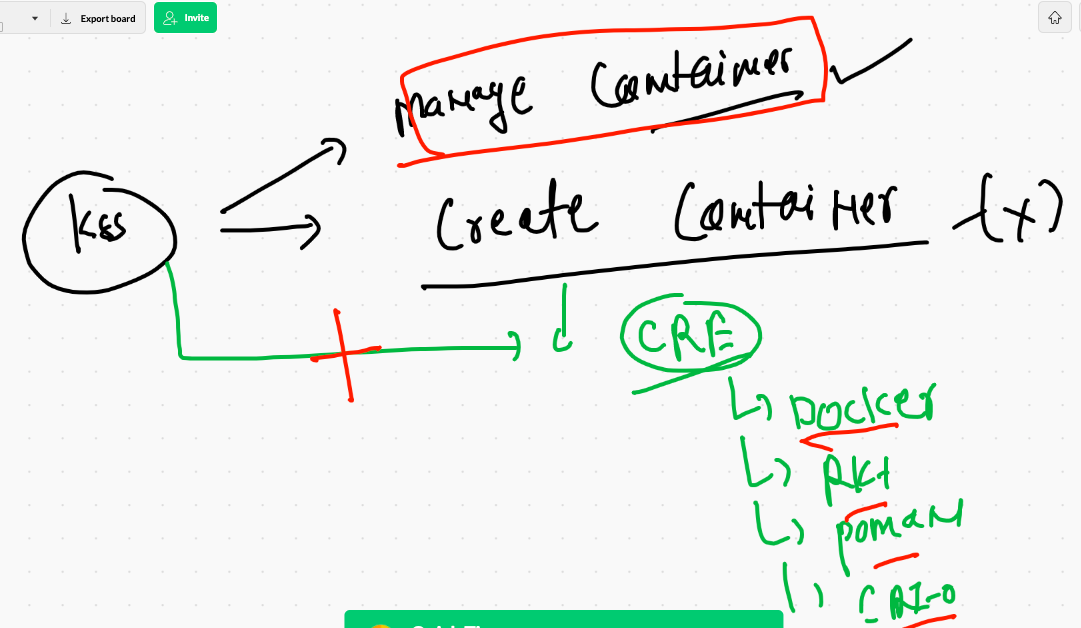 Export board
Invite
Manage Container
K8s
Create Container (x)
CRE
Docker
RKt
Podman
CRI-O